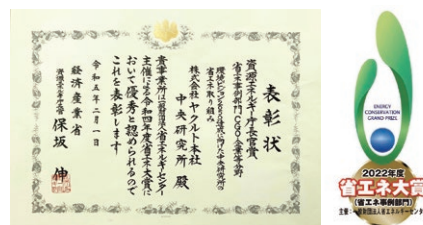 表彰状
資源エネルギー庁長官賞
省エネ事例部門 CGO・企業等分野
省エネ取り組み
株式会社 ヤクルト本社
中央研究所 殿
貴事業所は一般財団法人省エネルギーセンター
主催による令和四年度省エネ大賞に
おいて優秀と認められるので
これを表彰します
令和五年二月一日
経済産業省
資源エネルギー庁長官 保坂 伸
ENERGY
CONSERVATION
GRAND PRIZE
2022年度
省エネ大賞
(省エネ事例部門)
主催:一般財団法人省エネルギーセンター